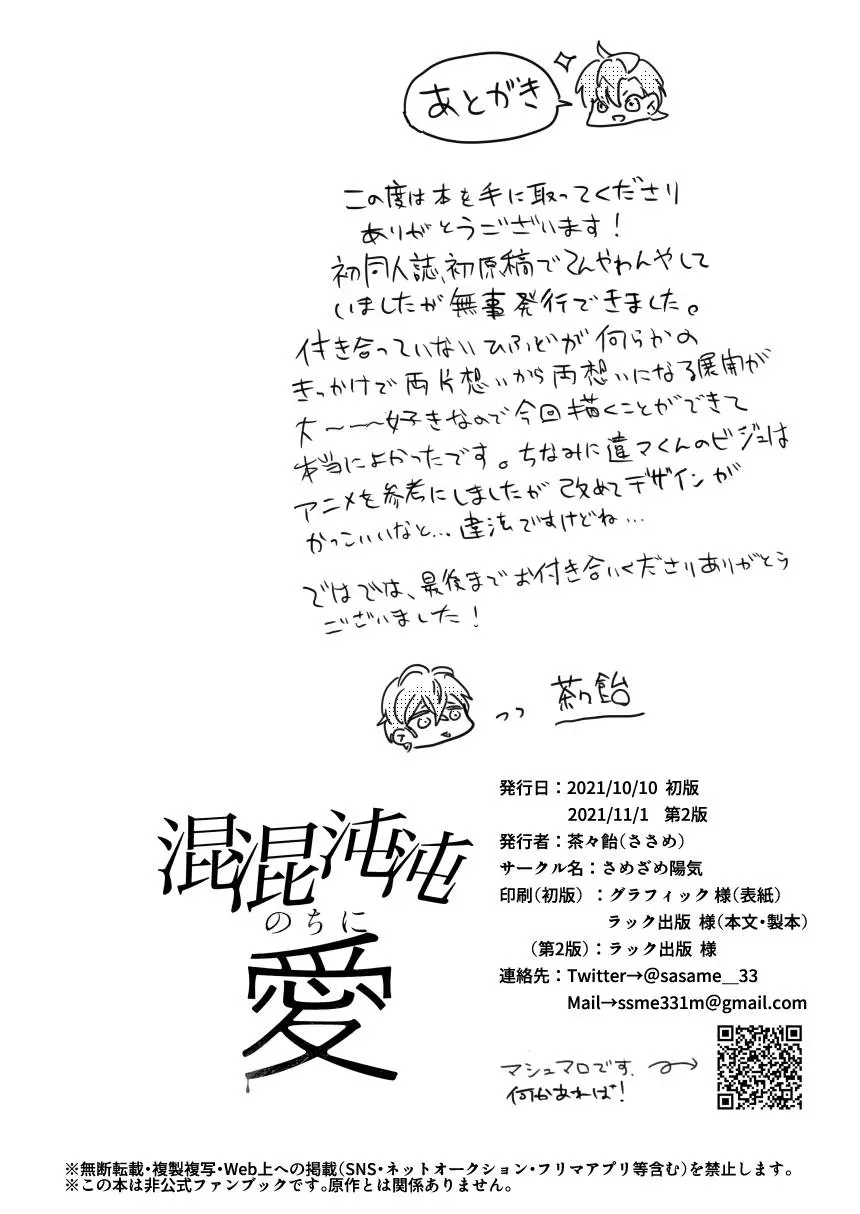 あとがき
この度は本を手に取ってくださり
ありがとうございます!
初同人誌、初原稿でてんやわんやして
いましたが無事発行できました。
付き合っていないひふどが何らかの
きっかけで両片想いから両想いになる展開が
大〜〜〜好きなので今回描くことができて
本当によかったです。ちなみに違マくんのビジュは
アニメを参考にしましたが改めてデザインが
かっこいいなと…違法ですけどね…
ではでは、最後までお付き合いくださりありがとう
ございました!
茶々飴
混混沌沌
のちに
愛
発行日:2021/10/10 初版
2021/11/1 第2版
発行者:茶々飴(ささめ)
サークル名:さめざめ陽気
印刷(初版):グラフィック 様(表紙)
ラック出版 様(本文・製本)
(第2版):ラック出版 様
連絡先:Twitter→@sasame__33
Mail→ssme331m@gmail.com
マシュマロです.
何かあれば!
※無断転載・複製複写・Web上への掲載(SNS・ネットオークション・フリマアプリ等含む)を禁止します。
※この本は非公式ファンブックです。原作とは関係ありません。